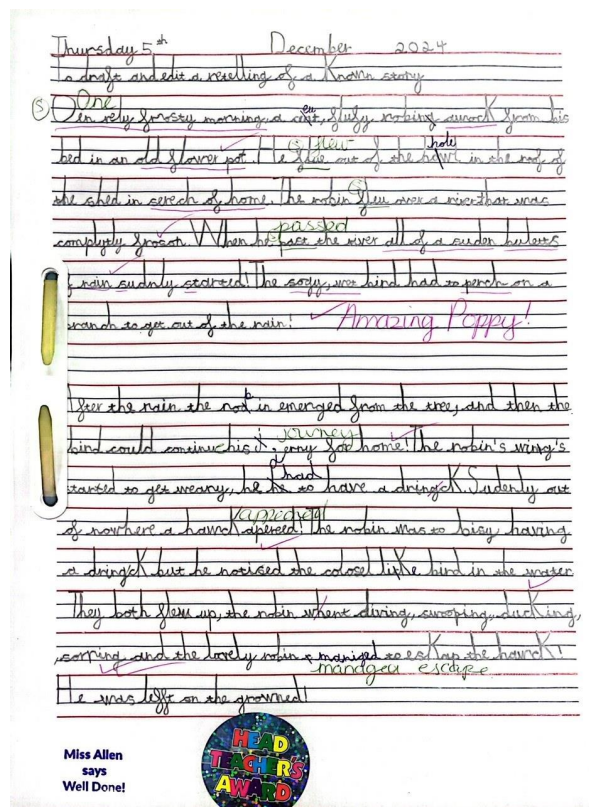 Thursday 5th December 2024
To draft and edit a retelling of a Known story
One
S Oen vely frosty morning, a cut, flufy robing awock from his
flew hole
bed in an old flower pot. He flue out of the howl in the roof of
the shed in serech of home. The robin flew over a river that was
passed
complytly froson. When he past the river all of a suden bulerts
of rain sudnly started! The sogy, wet bird had to perch on a
branch to get out of the rain! Amazing Poppy!
After the rain the robin emerged from the tree, and then the
journey
bird could continue his jerny for home! The robin's wing's
had
started to get weary, he to have a dringcK. Sudenly out
appeared
of nowhere a hawcK apereed! The robin was to bisy having
a dringcK but he notised the colosel like bird in the water
They both flew up, the robin whent diving, swooping, ducKing,
sorring and the lovely robin maniged to esKap the hawcK!
managed escape
He was lefft on the growned!
HEAD
TEACHER'S
AWARD
Miss Allen
says
Well Done!